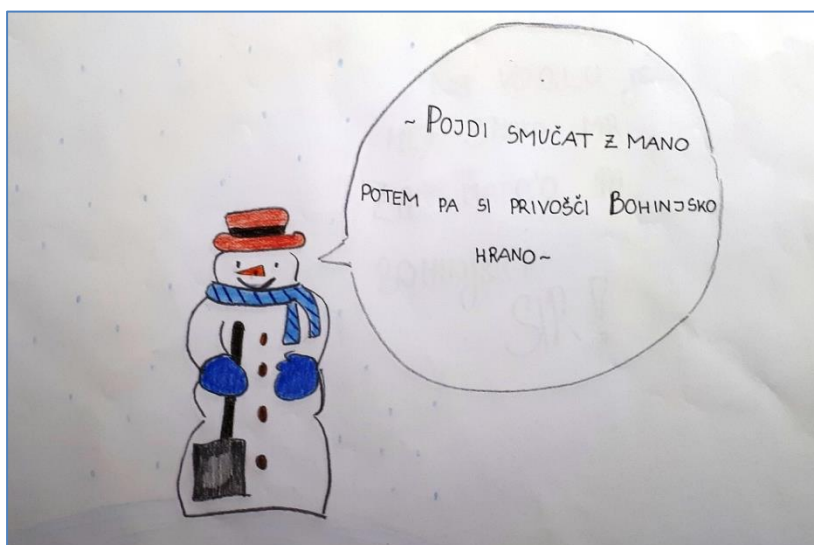 ~ POJDI SMUČAT Z MANO
POTEM PA SI PRIVOŠČI BOHINJSKO
HRANO ~